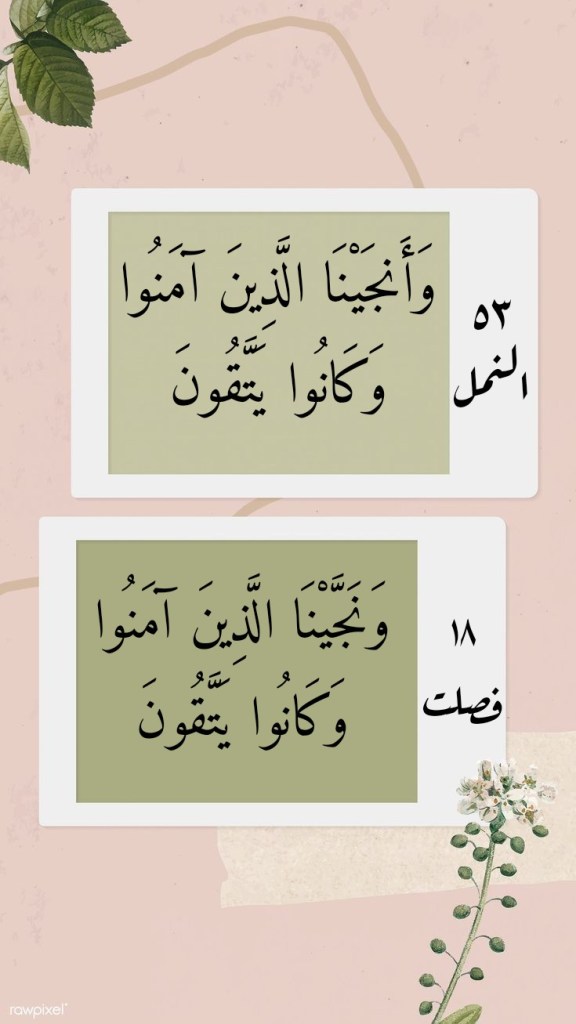 وَأَنجَيْنَا الَّذِينَ آمَنُوا
وَكَانُوا يَتَّقُونَ
٥٣
النمل
وَنَجَّيْنَا الَّذِينَ آمَنُوا
وَكَانُوا يَتَّقُونَ
١٨
فصلت
rawpixel